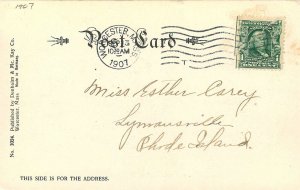 1907
Post Card
WORCESTER, MASS.
1907
Miss Esther Carey
Lymansville
Rhode Island.
No. 3054. Published by Denholm & Mc. Kay Co.
Worcester, Mass. Made in Germany.
THIS SIDE IS FOR THE ADDRESS.